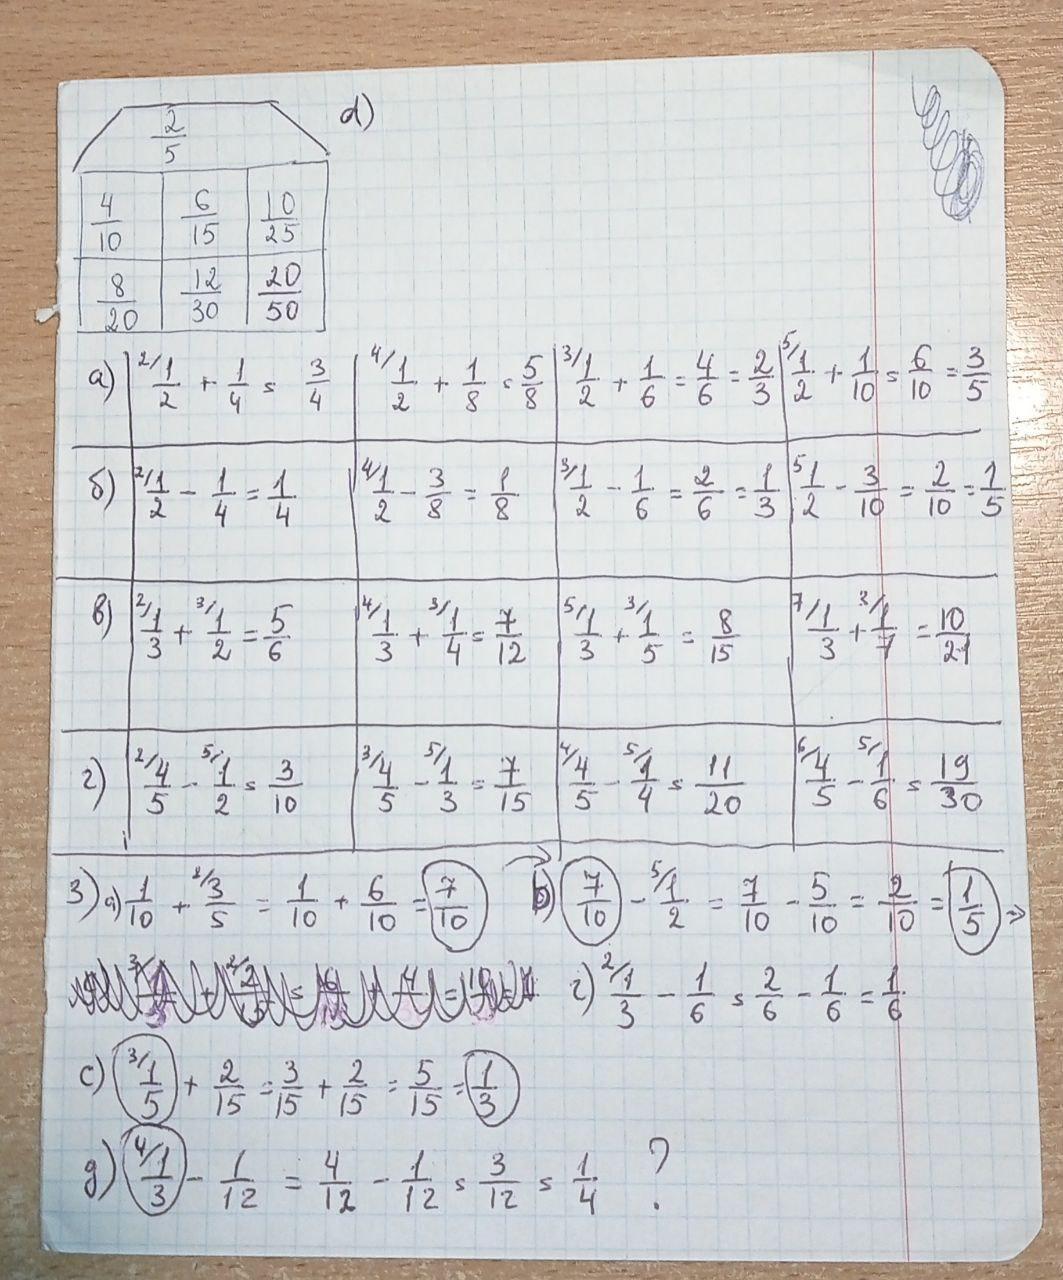 2/5 d)
4/10 6/15 10/25
8/20 12/30 20/50
а) 2/ 1/2 + 1/4 = 3/4 4/ 1/2 + 1/8 = 5/8 3/ 1/2 + 1/6 = 4/6 = 2/3 5/ 1/2 + 1/10 = 6/10 = 3/5
б) 2/ 1/2 - 1/4 = 1/4 4/ 1/2 - 3/8 = 1/8 3/ 1/2 - 1/6 = 2/6 = 1/3 5 1/2 - 3/10 = 2/10 = 1/5
в) 2/ 1/3 + 3/ 1/2 = 5/6 4/ 1/3 + 3/ 1/4 = 7/12 5/ 1/3 + 3/ 1/5 = 8/15 7/ 1/3 + 3/ 1/7 = 10/21
г) 2/ 4/5 - 5/ 1/2 = 3/10 3/ 4/5 - 5/ 1/3 = 7/15 4/ 4/5 - 5/ 1/4 = 11/20 6/ 4/5 - 5/ 1/6 = 19/30
3) а) 1/10 + 2/ 3/5 = 1/10 + 6/10 = 7/10 b) 7/10 - 5/ 1/2 = 7/10 - 5/10 = 2/10 = 1/5 →
г) 2/ 1/3 - 1/6 = 2/6 - 1/6 = 1/6
c) 3/ 1/5 + 2/15 = 3/15 + 2/15 = 5/15 = 1/3
g) 4/ 1/3 - 1/12 = 4/12 - 1/12 = 3/12 = 1/4 ?